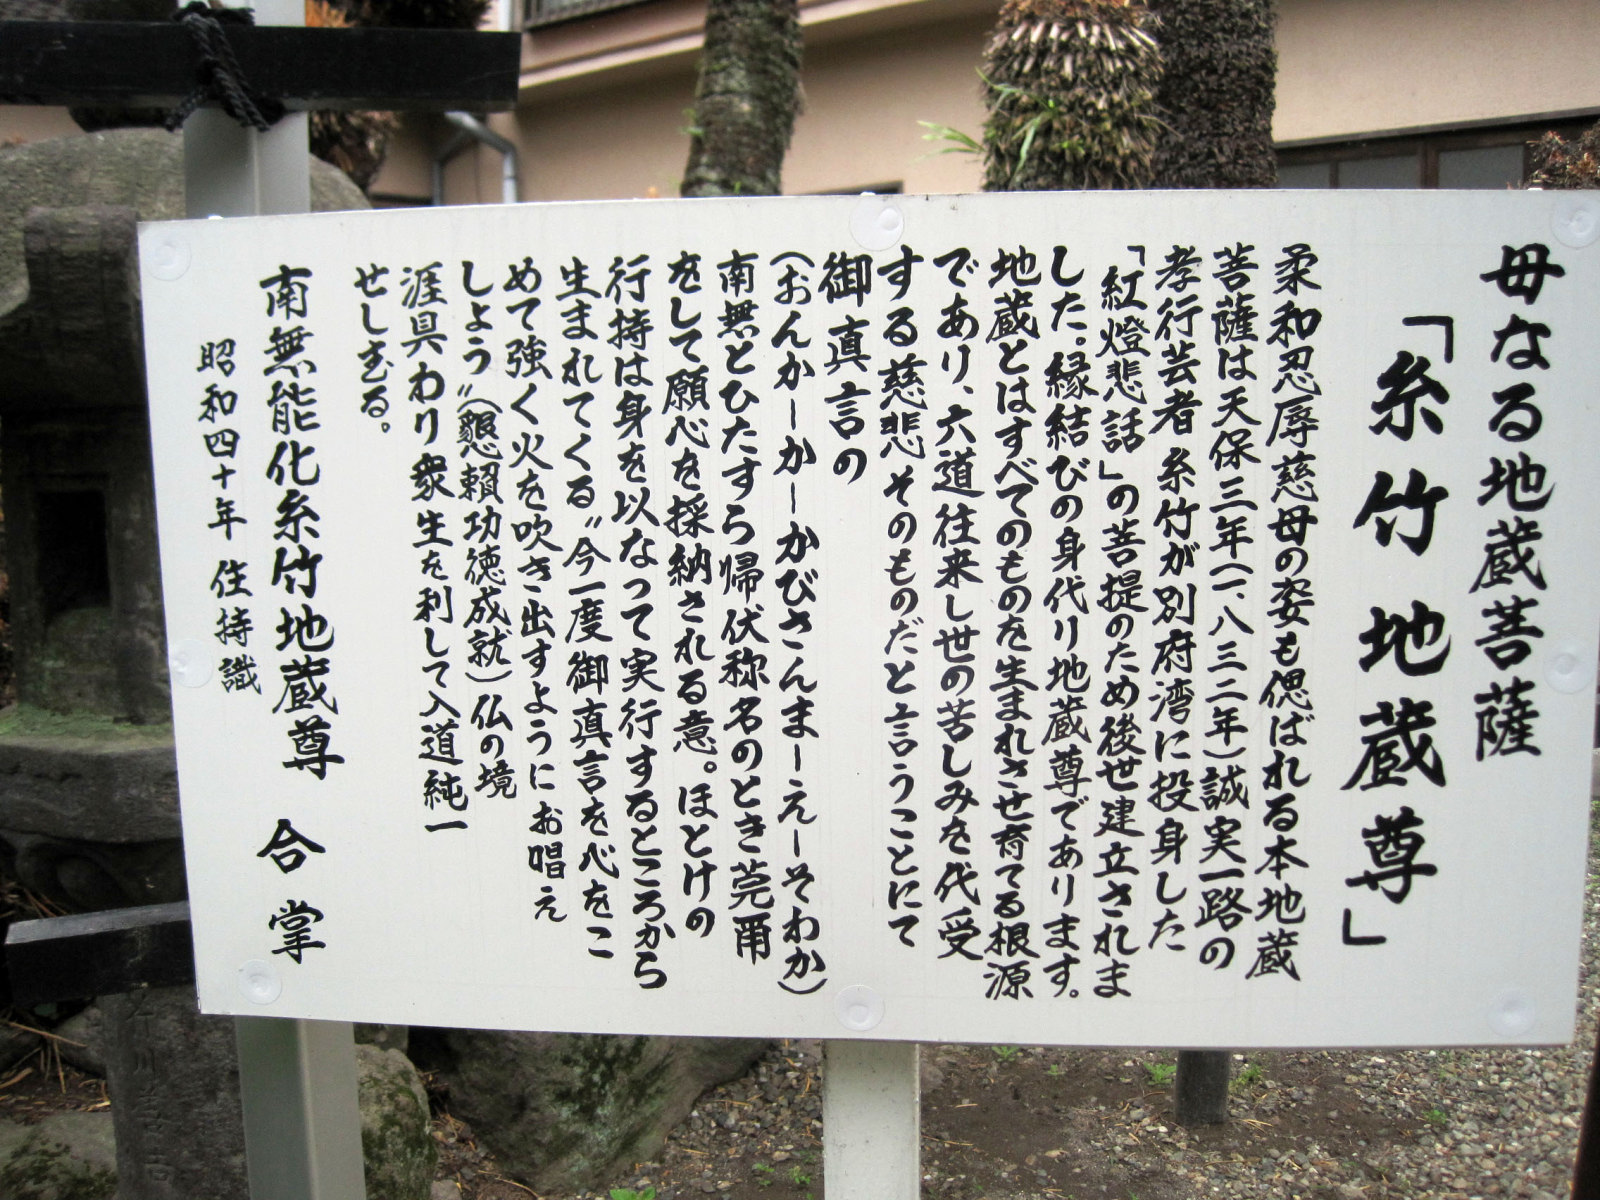 母なる地蔵菩薩
「糸竹地蔵尊」
柔和忍辱慈母の姿も偲ばれる本地蔵
菩薩は天保三年(一、八三二年)誠実一路の
孝行芸者糸竹が別府湾に投身した
「紅燈悲話」の菩提のため後世建立されま
した。縁結びの身代り地蔵尊であります。
地蔵とはすべてのものを生まれさせ育てる根源
であり、六道往来し世の苦しみを代受
する慈悲そのものだと言うことにて
御真言の
(おんかーかーかびさんまーえーそわか)
南無とひたすら帰伏称名のとき莞爾
をして願心を採納される意。ほとけの
行持は身を以なって実行するところから
生まれてくる〃今一度御真言を心をこ
めて強く火を吹き出すようにお唱え
しよう〃(懇頼功徳成就)仏の境
涯具わり衆生を利して入道純一
せしまる。
南無能化糸竹地蔵尊 合掌
昭和四十年 住持識